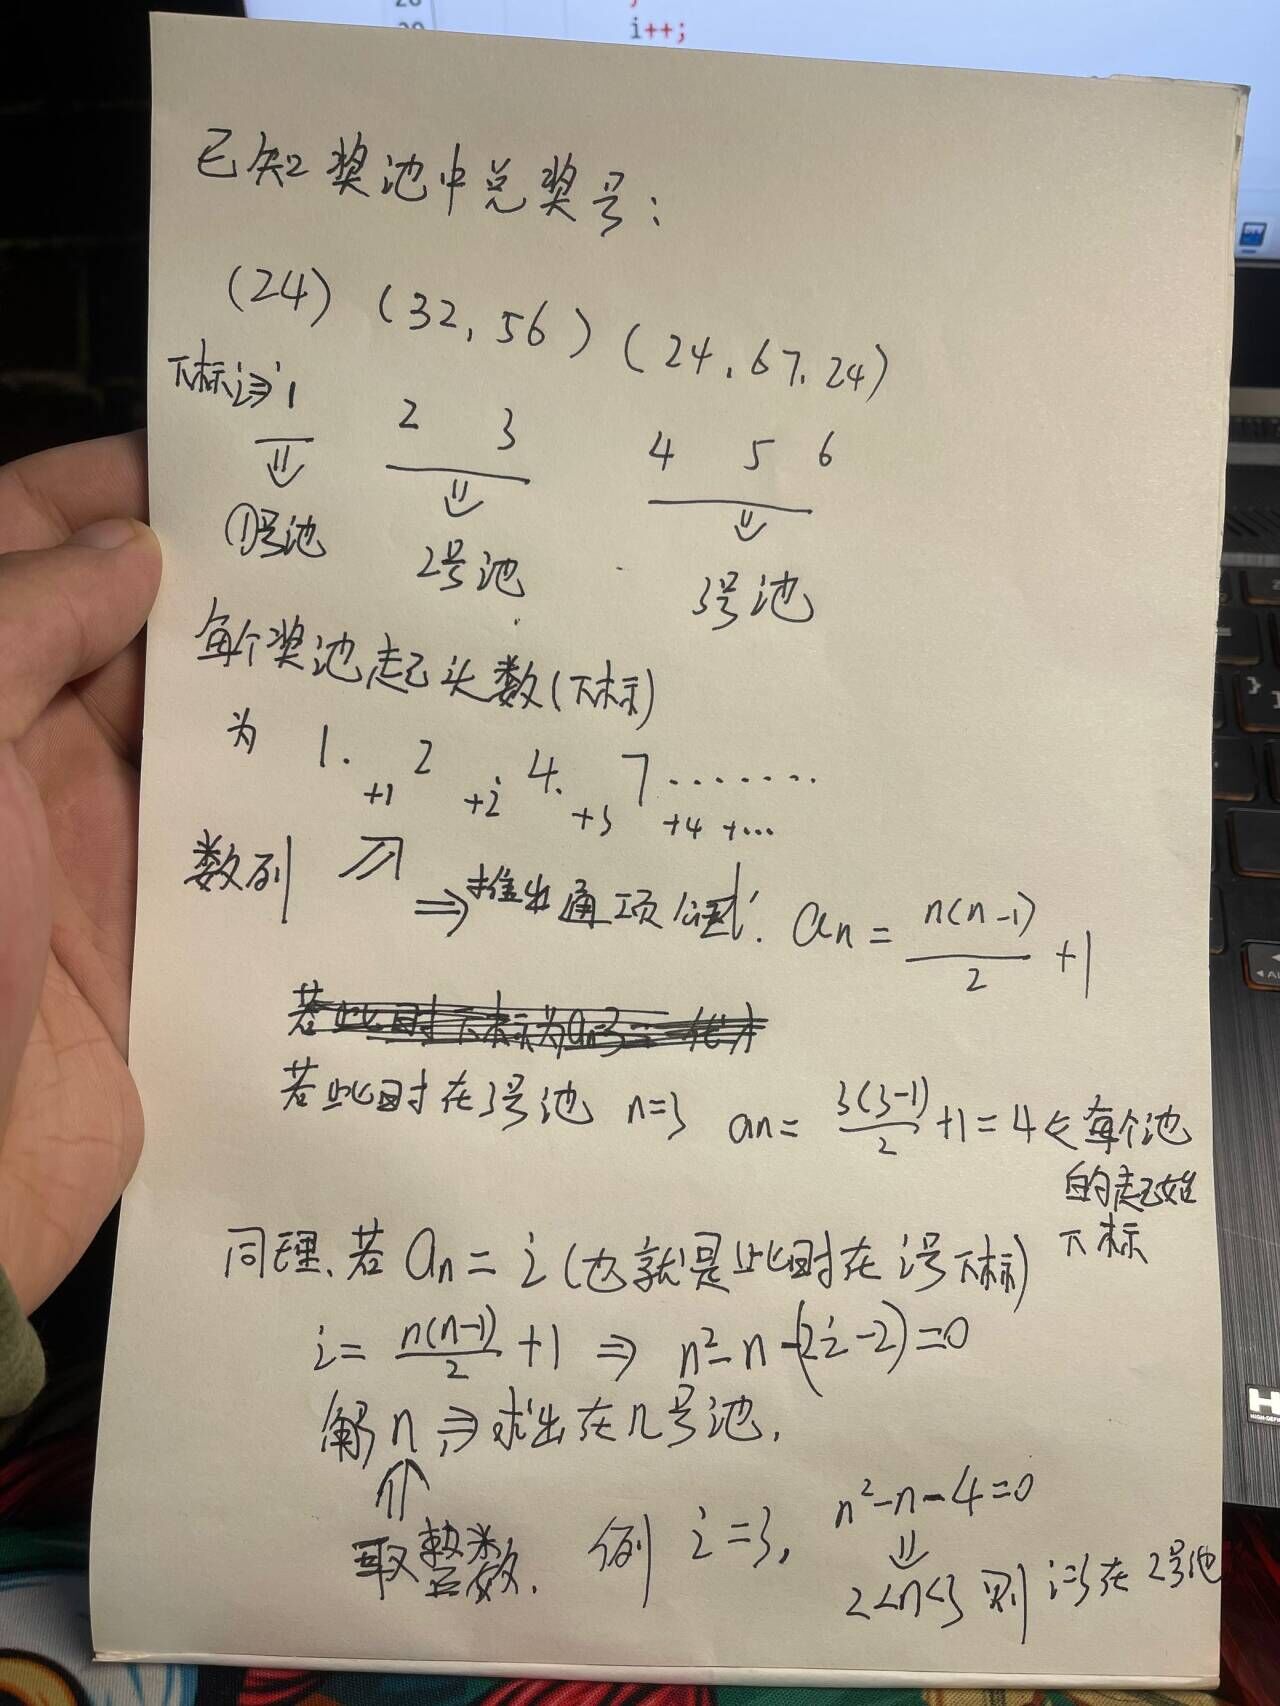 i++;
已知奖池中兑奖号：
(24) (32, 56) (24, 67, 24)
下标i⇒ 1 2 3 4 5 6
①号池 2号池 3号池
每个奖池起头数(下标)
为 1. 2 4. 7 ........
+1 +2 +3 +4 +...
数列
⇒推出通项公式: an = n(n-1)/2 + 1
若此时在3号池 n=3 an = 3(3-1)/2 +1 = 4 < 每个池
的起始
下标
同理、若 an = i (也就是此时在i号下标)
i = n(n-1)/2 + 1 ⇒ n²-n-(2i-2)=0
解n ⇒求出在几号池.
取整数. 例 i=3, n²-n-4=0
2<n<3 则 i=3在2号池